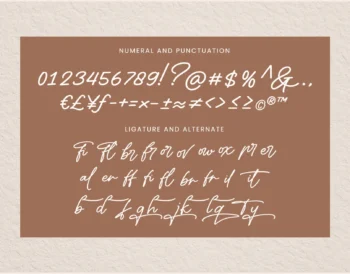 NUMERAL AND PUNCTUATION
0123456789!?@#$%^&..
€£¥ƒ-+=×-±≈≠<>≤≥©®™
LIGATURE AND ALTERNATE
fi fl br fr or ov ow ox pr er
al en ff fi fl br fr il it
b d gh jk lq Ty